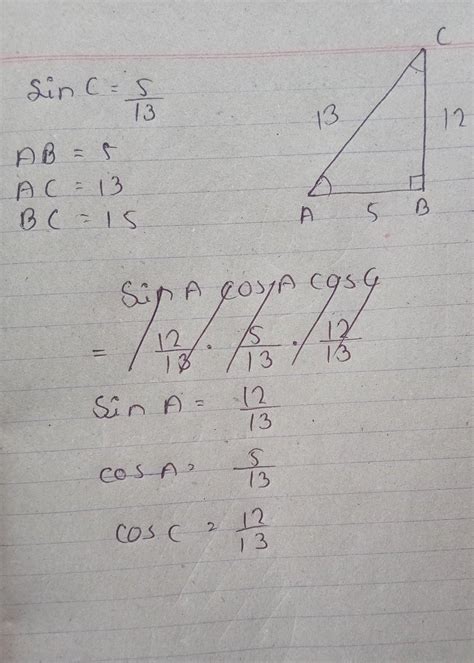 Sin C = 5/13
AB = 5
AC = 13
BC = 15
C
13
12
A
5
B
Sin A cos A cos C
= 12/13 . 5/13 . 12/13
Sin A = 12/13
cos A = 5/13
cos C = 12/13